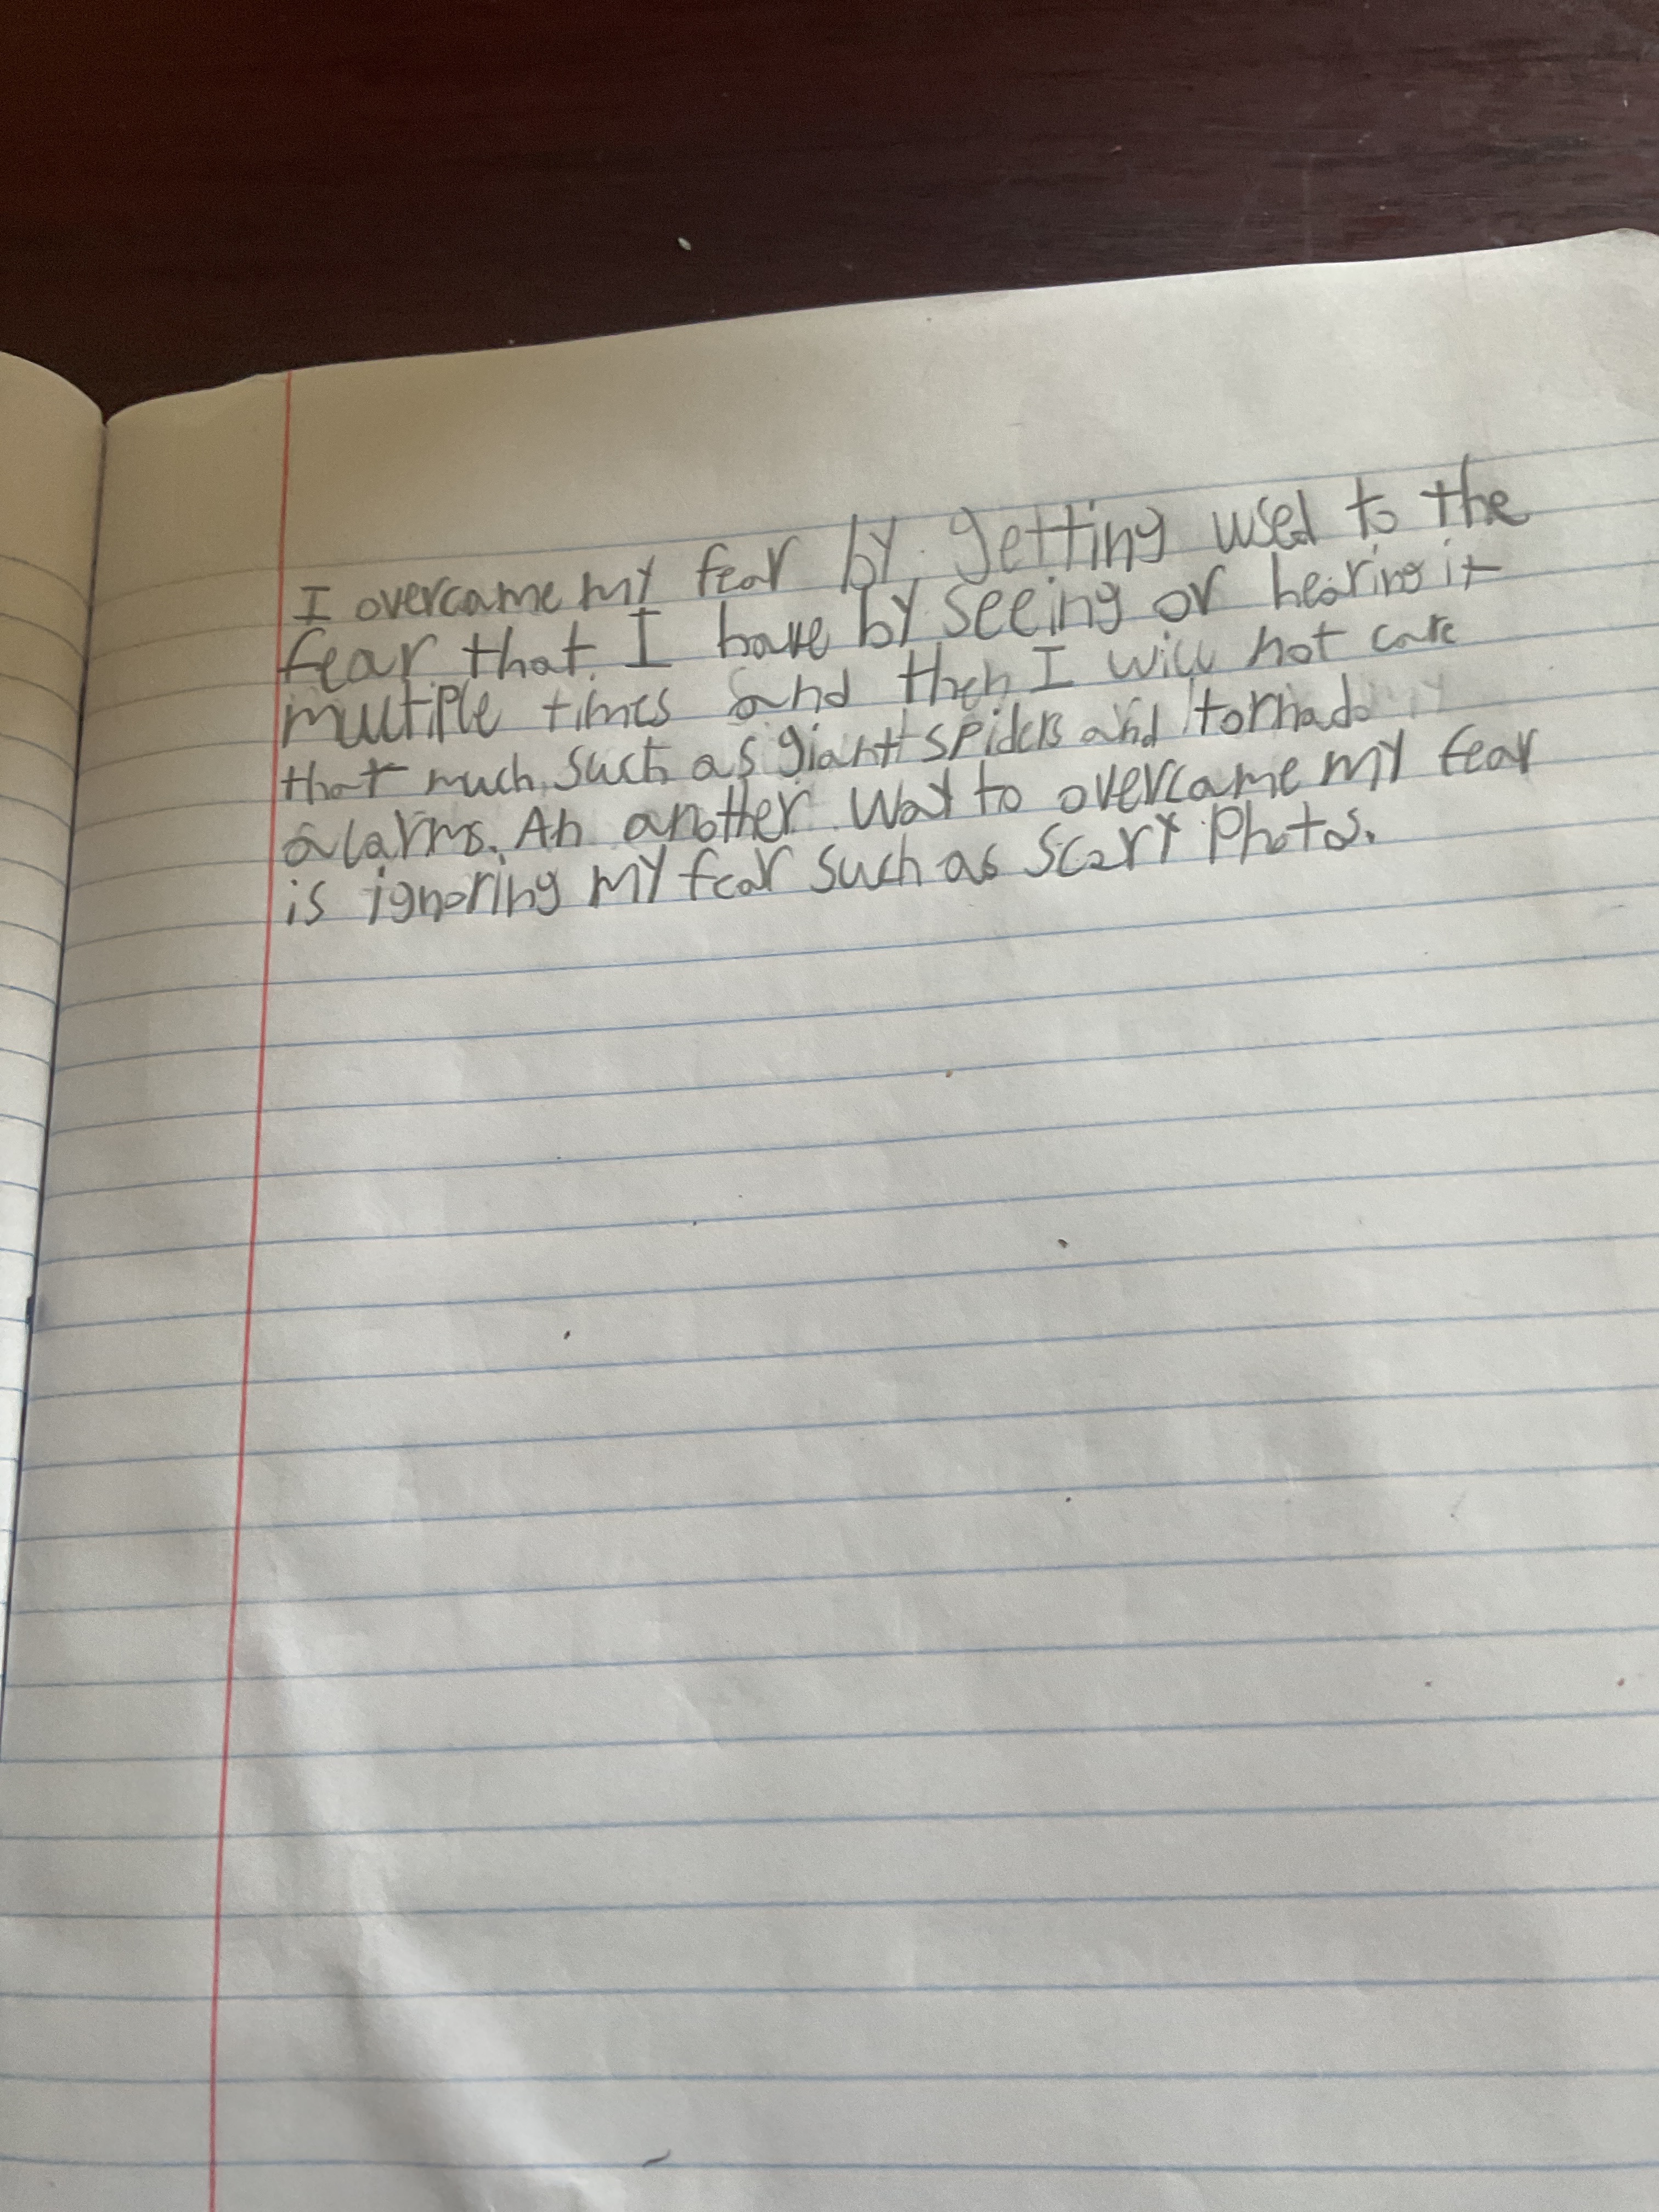 I overcame my fear by getting used to the
fear that I have by seeing or hearing it
multiple times and then I will not care
that much, such as giant spiders and tornado
alarms. An another way to overcame my fear
is ignoring my fear such as scary photos.